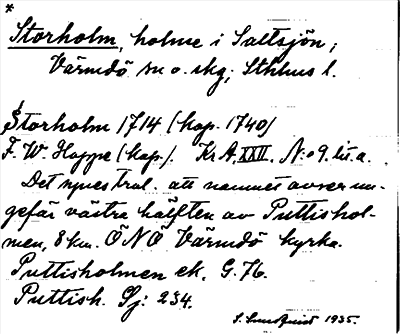 *
Storholm, holme i Saltsjön;
Värmdö sn o. skg; Sthlms l.
Storholm 1714 (kop. 1740)
F. W. Hoppe (kop.). Kr A. XXII. N:o 9. lit. a.
Det synes tral. att namnet avser un-
gefär västra hälften av Puttishol-
men, 8 km. ÖNÖ Värmdö kyrka.
Puttisholmen ek. G. 76.
Puttish. Sj: 234.
S. Lundquist 1935.